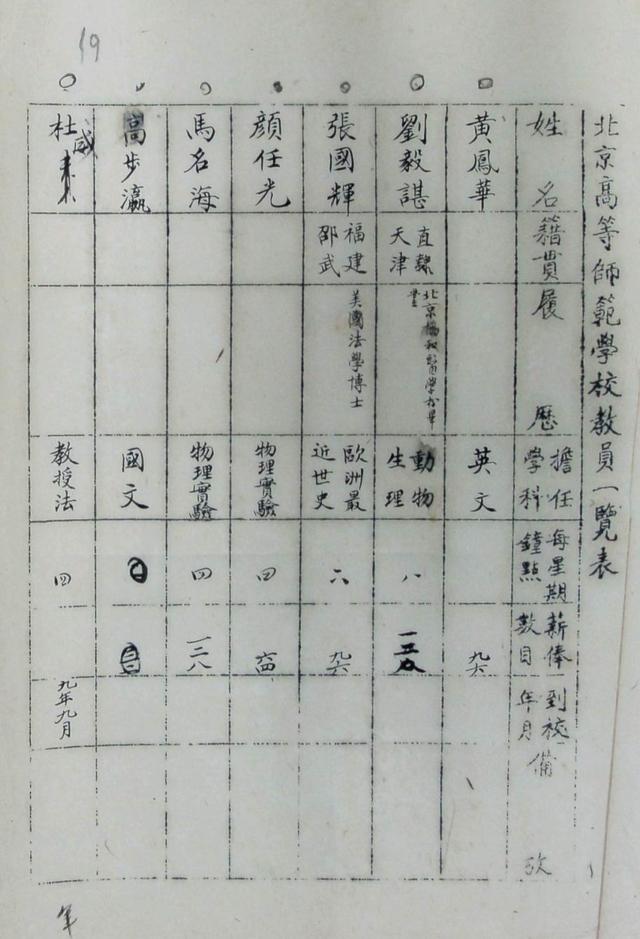 北京高等師範學校教員一覽表
姓名
籍貫
履歷
擔任學科
每星期鐘點
薪俸數目
到校年月
備攷
黃鳳華
英文
九六
劉毅諶
直隸天津
動物生理
八
張國輝
福建邵武
美國法學博士
歐洲最近世史
六
九六
顏任光
物理實驗
四
六四
馬名海
物理實驗
四
一二八
高步瀛
國文
杜威
教授法
四
九年九月
19